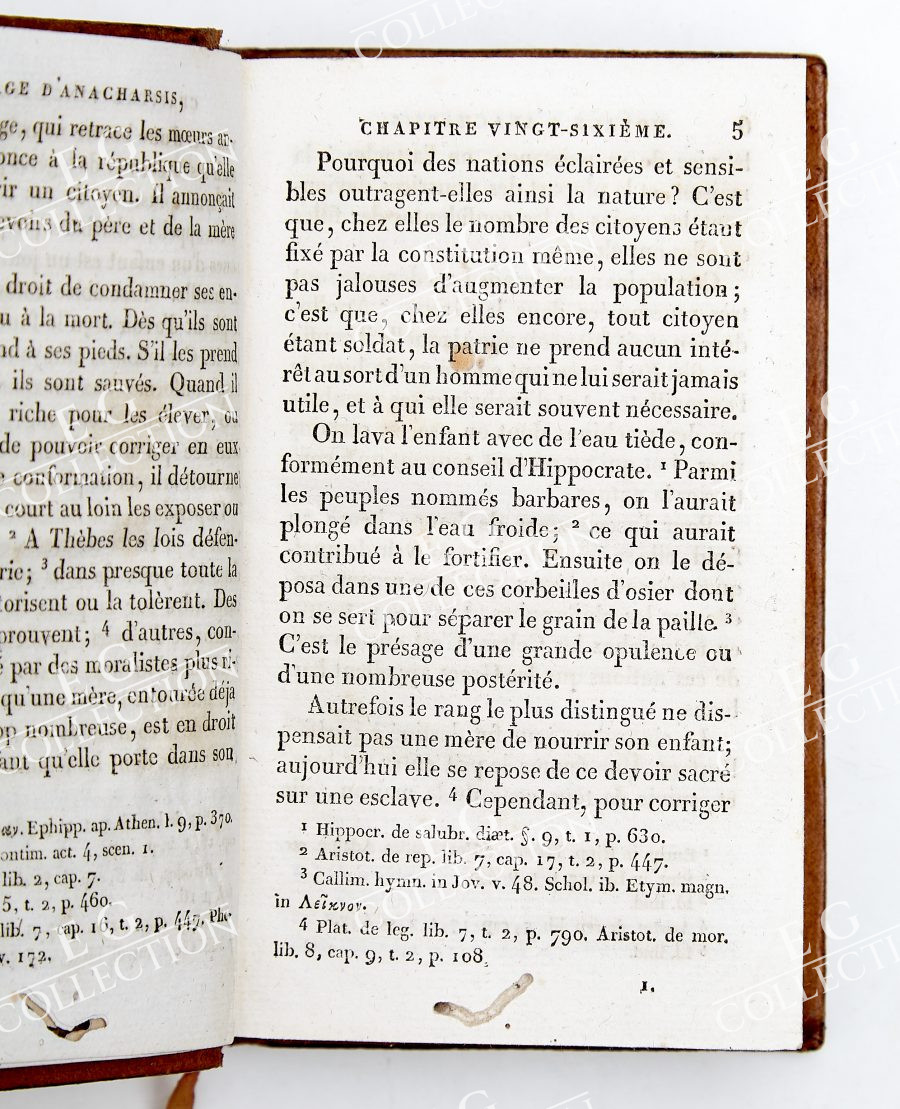 GE D'ANACHARSIS,
ge, qui retrace les mœurs an-
once à la république qu'elle
ir un citoyen. Il annonçait
evons du père et de la mère
droit de condamner ses en-
u à la mort. Dès qu'ils sont
nd à ses pieds. S'il les prend
ils sont sauvés. Quand il
riche pour les élever, ou
de pouvoir corriger en eux
conformation, il détourne
court au loin les exposer ou
² A Thèbes les lois défen-
rie; ³ dans presque toute la
torisent ou la tolèrent. Des
prouvent; ⁴ d'autres, con-
é par des moralistes plus ri-
qu'une mère, entourée déjà
op nombreuse, est en droit
ant qu'elle porte dans son
Ephipp. ap. Athen. l. 9, p. 370.
ontim. act. 4, scen. 1.
lib. 2, cap. 7.
5, t. 2, p. 460.
lib. 7, cap. 16, t. 2, p. 447. Pho-
v. 172.
CHAPITRE VINGT-SIXIÈME. 5
Pourquoi des nations éclairées et sensi-
bles outragent-elles ainsi la nature? C'est
que, chez elles le nombre des citoyens étant
fixé par la constitution même, elles ne sont
pas jalouses d'augmenter la population;
c'est que, chez elles encore, tout citoyen
étant soldat, la patrie ne prend aucun inté-
rêt au sort d'un homme qui ne lui serait jamais
utile, et à qui elle serait souvent nécessaire.
On lava l'enfant avec de l'eau tiède, con-
formément au conseil d'Hippocrate. ¹ Parmi
les peuples nommés barbares, on l'aurait
plongé dans l'eau froide; ² ce qui aurait
contribué à le fortifier. Ensuite on le dé-
posa dans une de ces corbeilles d'osier dont
on se sert pour séparer le grain de la paille. ³
C'est le présage d'une grande opulence ou
d'une nombreuse postérité.
Autrefois le rang le plus distingué ne dis-
pensait pas une mère de nourrir son enfant;
aujourd'hui elle se repose de ce devoir sacré
sur une esclave. ⁴ Cependant, pour corriger
¹ Hippocr. de salubr. diæt. §. 9, t. 1, p. 630.
² Aristot. de rep. lib. 7, cap. 17, t. 2, p. 447.
³ Callim. hymn. in Jov. v. 48. Schol. ib. Etym. magn.
in Λεῖκνον.
⁴ Plat. de leg. lib. 7, t. 2, p. 790. Aristot. de mor.
lib. 8, cap. 9, t. 2, p. 108.
1.
EG
COLLECTION